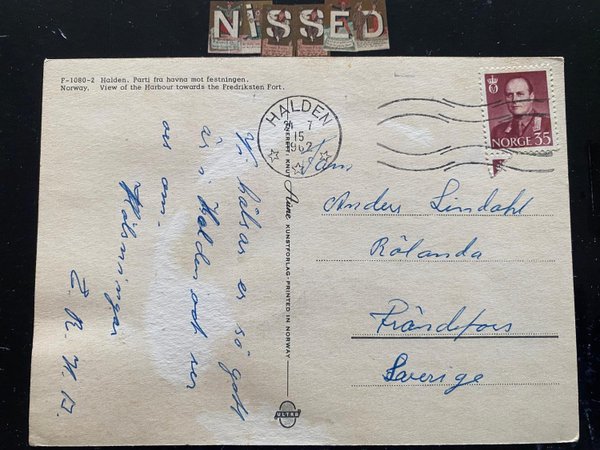 NiSSED
F-1080-2 Halden. Parti fra havna mot festningen.
Norway. View of the Harbour towards the Fredriksten Fort.
HALDEN
7
15
1962
NORGE 35
Vi hälsar er så gott
är i Halden och ser
oss om.
Hälsningar
Z. R. H. D.
ENERETT: KNUT Aune KUNSTFORLAG - PRINTED IN NORWAY
ULTRA
Fam
Anders Lindahl
Rölanda
Frändefors
Sverige